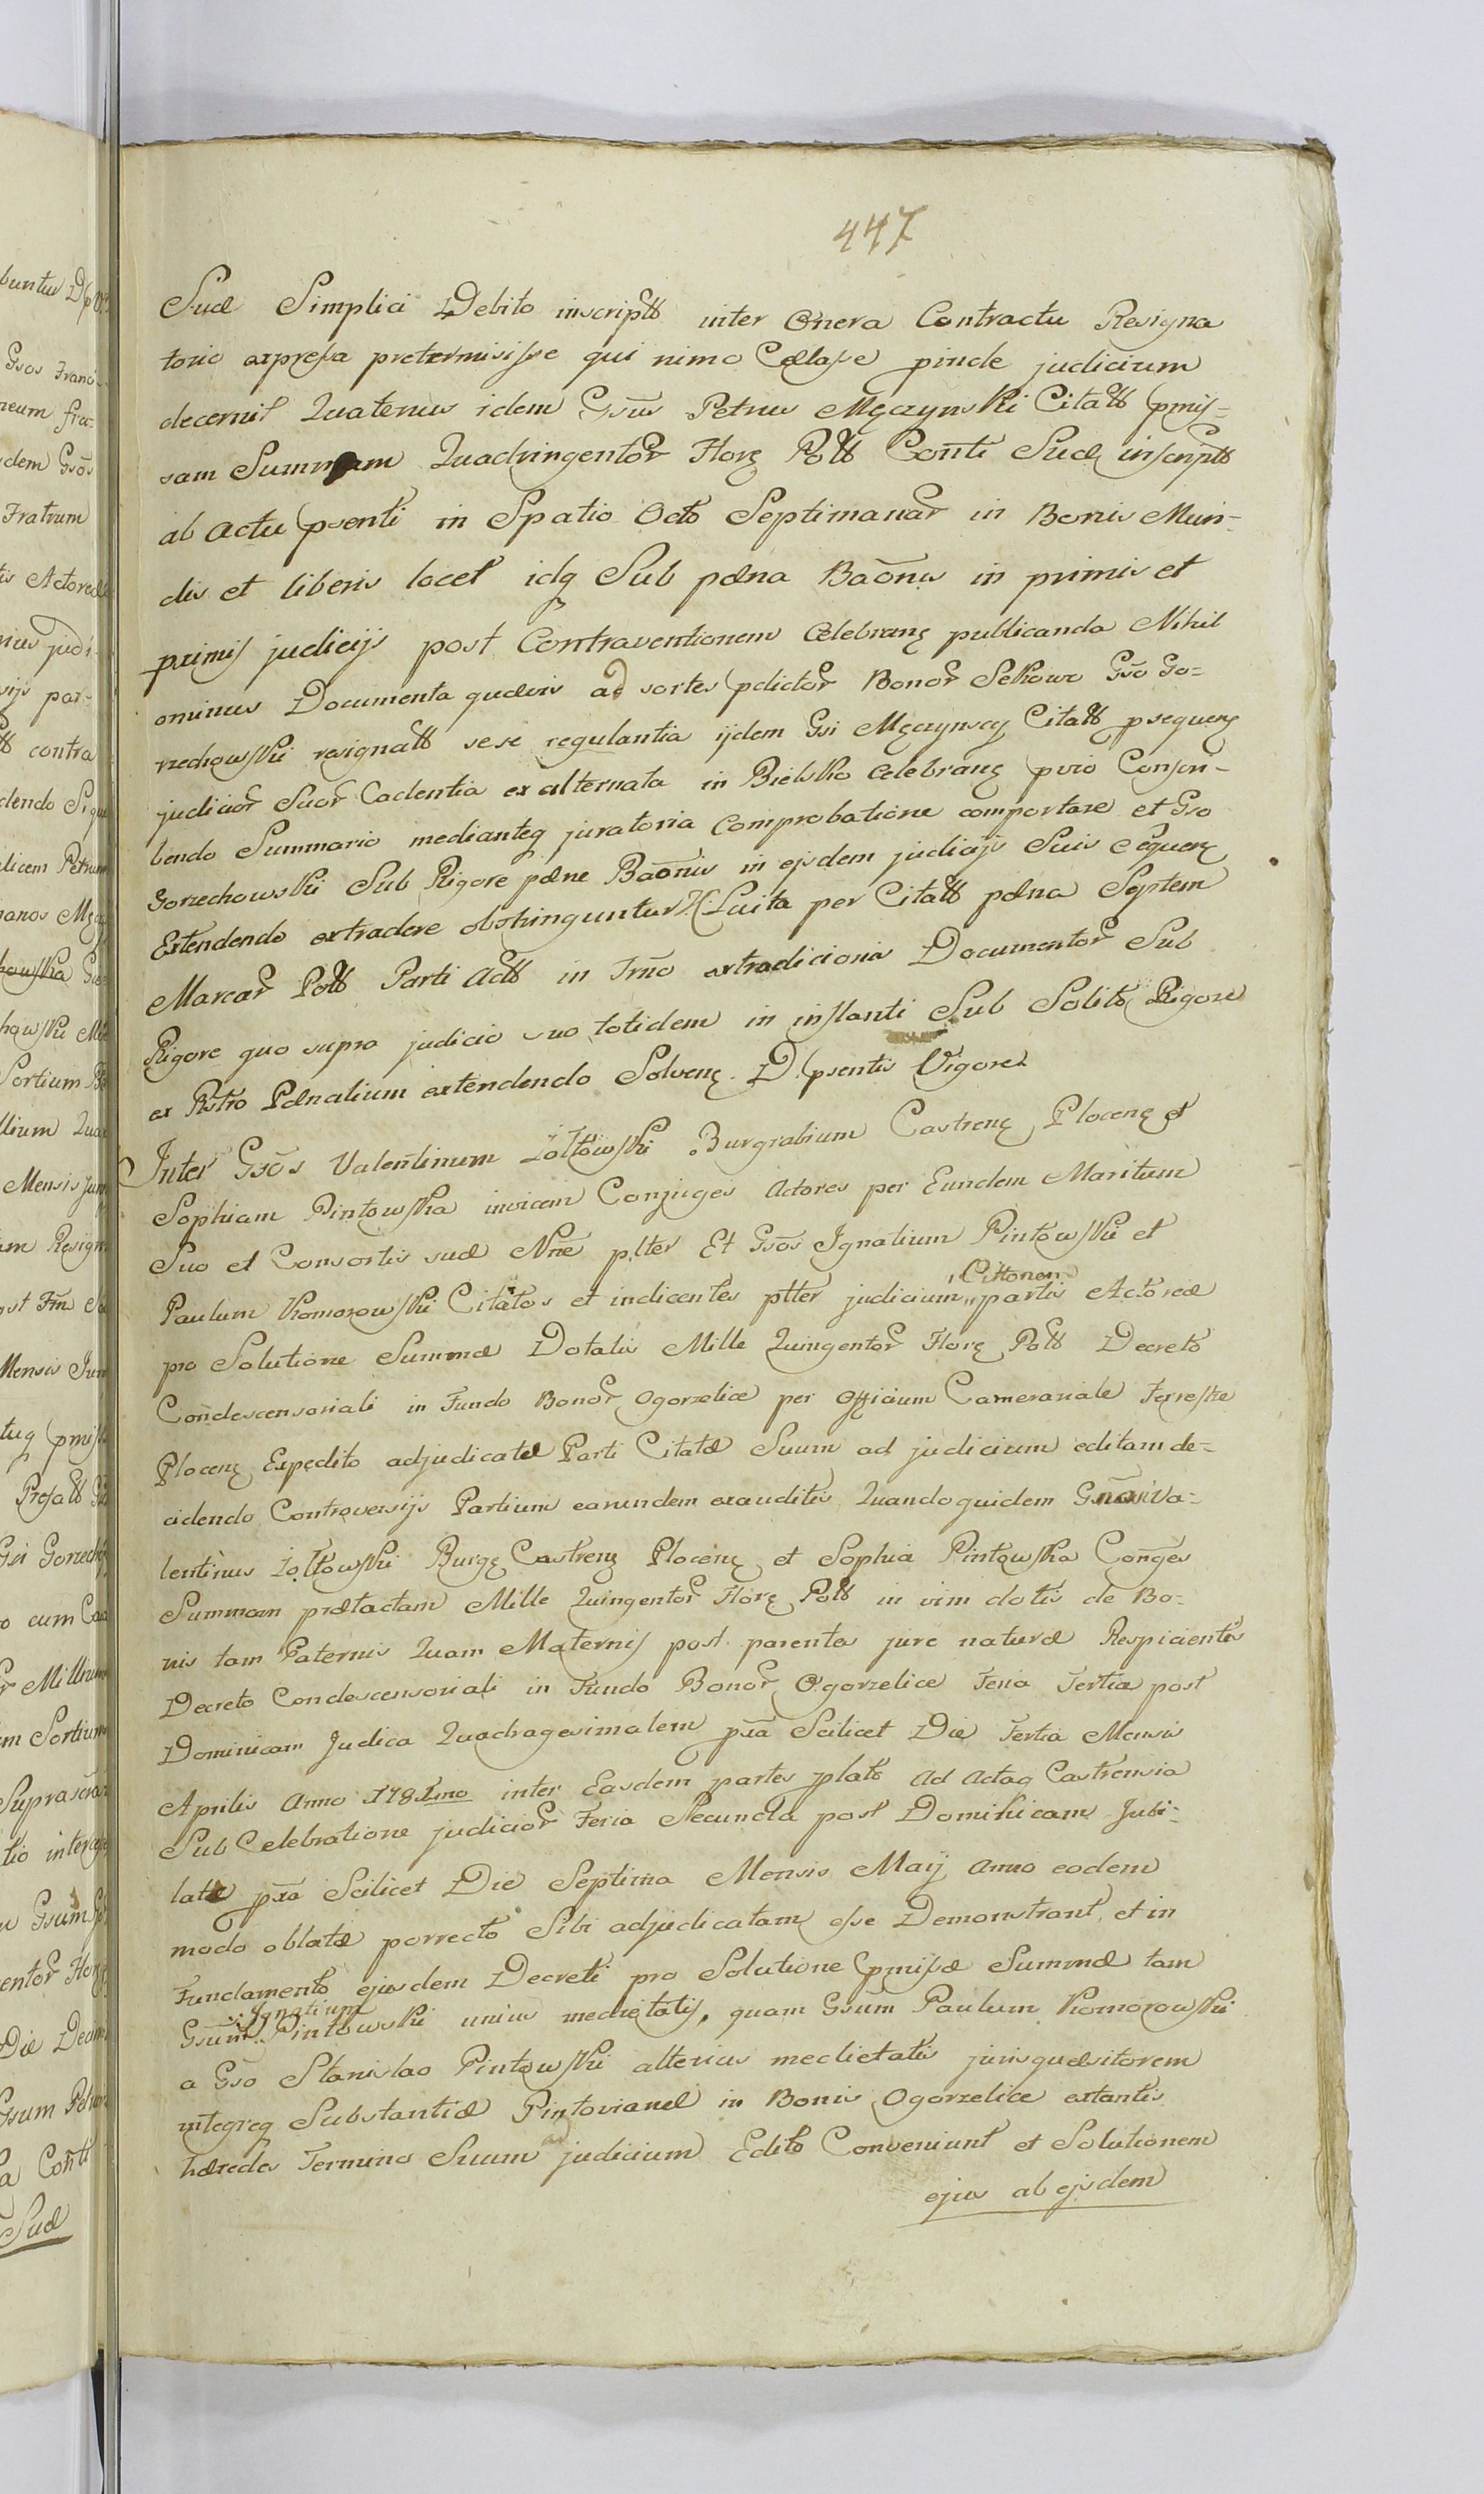 447
Suæ Simplici Debito inscriptt inter Onera Contractu Resigna
torio expressa pretermisisse qui nimo Cælasse pinde judicium
decernit Quatenus idem Gsus Petrus Męczynski Citatt pmis-
sam Summam Quadringentor Flore Poll Conti Suæ inscriptt
ab actu psenti in Spatio Octo Septimanar in Bonis Mun-
dis et liberis locet idq Sub pæna Baōnis in primis et
primis judiciis post Contraventionem Celebrane publicanda Nihil
ominus Documenta quævis ad sortes pdictor Bonor Sekowo Gso Go-
rzechowski resignatt sese regulantia ijdem Gsi Męczynscy Citatt psequene
judicior Suor Cadentia ex alternata in Bielsko Celebrane pvio Conscri-
bendo Summario medianteq juratoria Comprobatione comportare et Gso
Gorzechowski Sub Rigore pæne Baōnis in ejsdem judicijs Suis
Extendendo extradere obstringuntur Luita per Citatt pæna Septem
Marcar Poll Parti Actt in Trno extradicionis Documentor Sub
Rigore quo supra judicio suo totidem in instanti Sub Solito Rigore
ex Rstro Pænalium extendendo Solvene D. psentis Vigore
Inter Gsos Valentinum Żółtowski Burgrabium Castrene Plocene et
Sophiam Pintowska invicem Conjuges Actores per Eundem Maritum
Suo et Consortis suæ Nne plter Et Gsos Ignatium Pintowski et
Paulum Komorowski Citatos et indicentes ptter judicium Cittonem partis Actoreæ
pro Solutione Summæ Dotalis Mille Quingentor Flore Poll Decreto
Condescensoriali in Fundo Bonor Ogorzelice per Officium Camerariale Terrestre
Plocene Expedito adjudicatæ Parti Citatæ Suum ad judicium editam de-
cidendo Controversijs Partium earundem exauditis Quandoquidem Gnosi Va-
lentinus Żółtowski Burge Castrene Plocene et Sophia Pintowska Conges
Summam prætactam Mille Quingentor Flore Poll in vim dotis de Bo-
nis tam Paternis Quam Maternis post parentes jure naturæ Respicientes
Decreto Condescensoriali in Fundo Bonor Ogorzelice Feria Tertia post
Dominicam Judica Quadragesimalem pxa Scilicet Die Tertia Mensis
Aprilis Anno 1781mo inter Easdem partes plato Ad Actaq Castrensia
Sub Celebratione judicior Feria Secunda post Dominicam Jubi-
late pxa Scilicet Die Septima Mensis Maij anno eodem
modo oblatæ porrecto Sibi adjudicatam esse Demonstrant et in
Fundamento ejusdem Decreti pro Solutione pmissæ Summæ tam
Gsum Ignatium Pintowski unius medietatis, quam Gsum Paulum Komorowski
a Gso Stanislao Pintowski alterius medietatis jurisquæsitorem
integreq Substantiæ Pintovianæ in Bonis Ogorzelice extantis
hæredes Termino Suum ad judicium Edito Conveniunt et Solutionem
ejus ab ejsdem